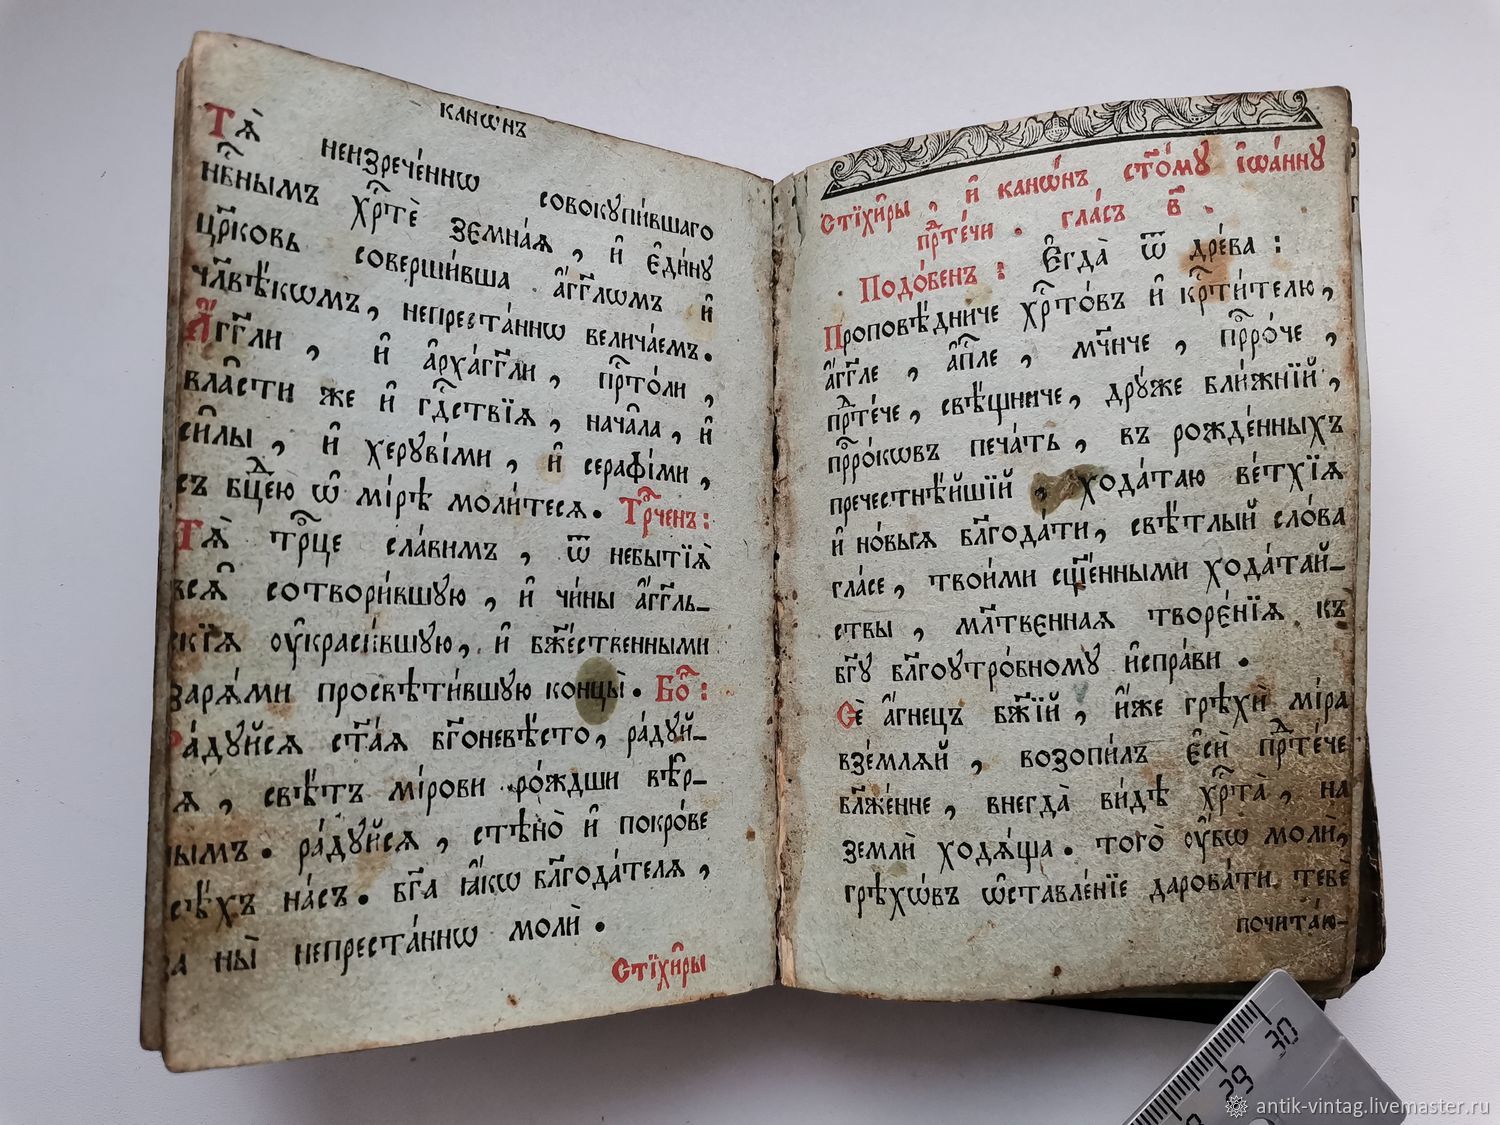 канѡ́нъ
Тѧ̀ неизрече́ннѡ совокупи́вшаго
нб҃нымъ хр҃тѐ земна́ѧ, и҆ є҆ди́ну
цр҃ковь соверши́вша а҆́гг҃лѡмъ и҆
чл҃вѣ́кѡмъ, непреста́ннѡ велича́емъ.
А҆́гг҃ли, и҆ а҆рха́гг҃ли, пр҃то́ли,
вла̑сти же и҆ гд҃ствїѧ, нача̑ла, и҆
си̑лы, и҆ херуві́ми, и҆ серафі́ми,
съ бц҃ею ѡ҆ мі́рѣ моли́тесѧ. Тр҃ченъ:
Тѧ̀ тр҃це сла́вимъ, ѿ небытїѧ̀
всѧ̑ сотвори́вшую, и҆ чи́ны а҆́гг҃ль_
скїѧ ᲂу҆краси́вшую, и҆ бж҃е́ственными
зарѧ́ми просвѣти́вшую концы̀. Бо҃:
Ра́дуйсѧ ст҃а́ѧ бг҃оневѣ́сто, ра́дуй_
ѧ, свѣ́тъ мі́рови ро́ждши вѣ̑р_
ымъ. ра́дуйсѧ, стѣно̀ и҆ покро́ве
сѣ́хъ на́съ. бг҃а ꙗ҆́кѡ бл҃года́телѧ,
а ны̀ непреста́ннѡ молѝ.
Стїхи̑ры
Стїхи̑ры, и҆ канѡ́нъ ст҃о́му і҆ѡа́нну
пр҃те́чи. гла́съ в҃.
Подо́бенъ: Є҆гда̀ ѿ дре́ва:
Проповѣ́дниче хр҃то́въ и҆ кр҃ти́телю,
а҆́гг҃ле, а҆п҃ле, мч҃ниче, пр҃ро́че,
пр҃те́че, свѣ́щниче, дру́же бли́жнїй,
пр҃ро́кѡвъ печа́ть, въ рожде́нныхъ
пречестнѣ́йшїй, хода́таю ве́тхїѧ
и҆ но́выѧ бл҃года́ти, свѣ́тлый сло́ва
гла́се, твои́ми сщ҃е́нными хода́тай_
ствы, мл҃твенная творе́нїѧ къ
бг҃у бл҃гоутро́бному и҆спра́ви.
Сѐ а҆́гнецъ бж҃їй, и҆́же грѣхѝ мі́ра
взе́млѧй, возопи́лъ є҆сѝ пр҃те́че
бл҃же́нне, внегда̀ ви́дѣ хр҃та̀, на
землѝ ходѧ́ща. того̀ ᲂу҆̀бѡ молѝ,
грѣхѡ́въ ѡ҆ставле́нїе дарова́ти тебѐ
почита́ю_
30
29
antik-vintag.livemaster.ru